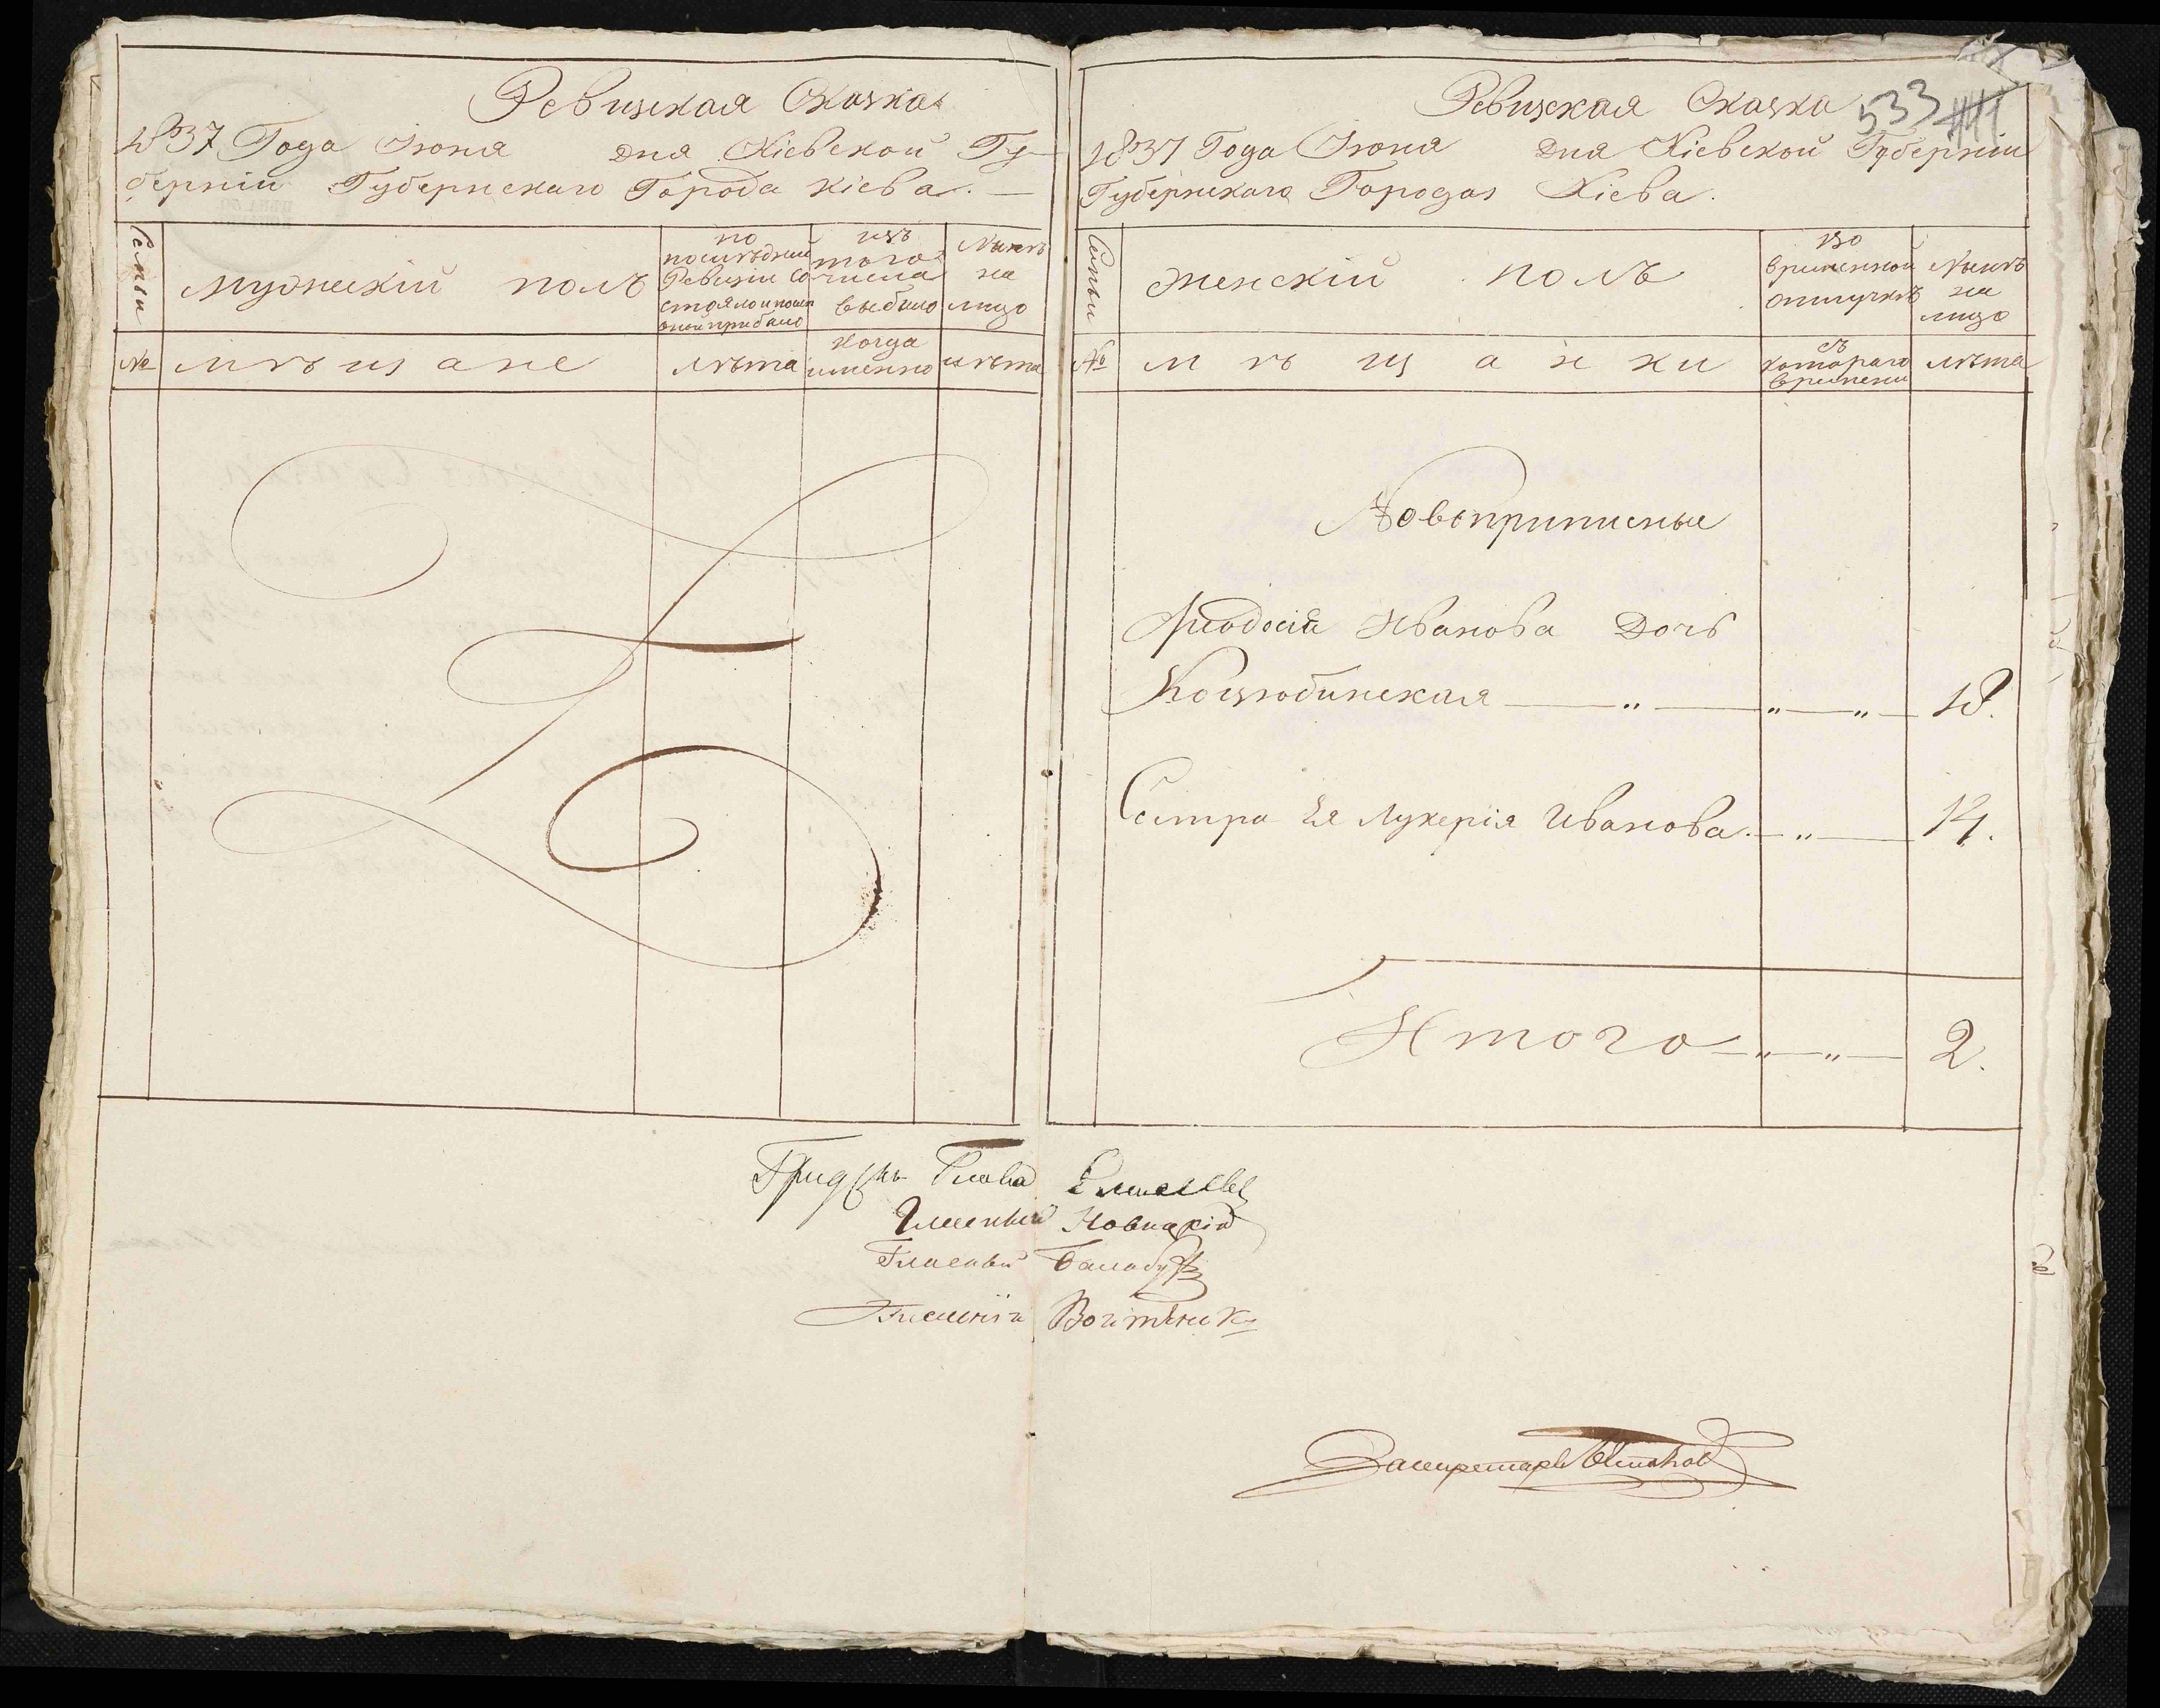 Ревизская Сказка
1837 Года Іюня дня Кіевской Гу-
берніи Губернскаго Города Кіева. —
Семьи
мужескій полъ
по
послѣдней
Ревизіи со
стояло и посл
оной прибыло
изъ
того
числа
выбыло
Нынѣ
на
лицо
№
мѣщане
лѣта
когда
именно
лѣта
533
Ревизская Сказка
1837 Года Іюня дня Кіевской Губерніи
Губернскаго Города Кіева.
Семьи
женскій полъ
во
временной
отлучкѣ
Нынѣ
на
лицо
№
мѣщанки
съ
котораго
времени
лѣта
Новоприписные
Феодосія Иванова Дочь
Коцюбинская — „ — „ — „ — 18.
Сестра Ея Лукерія Иванова. — „ — 14.
Итого — „ — „ — 2.
Градскій Глава Елисѣевъ
Гласный Новицкій
Гласный Балабуха
Гласный Войтенко